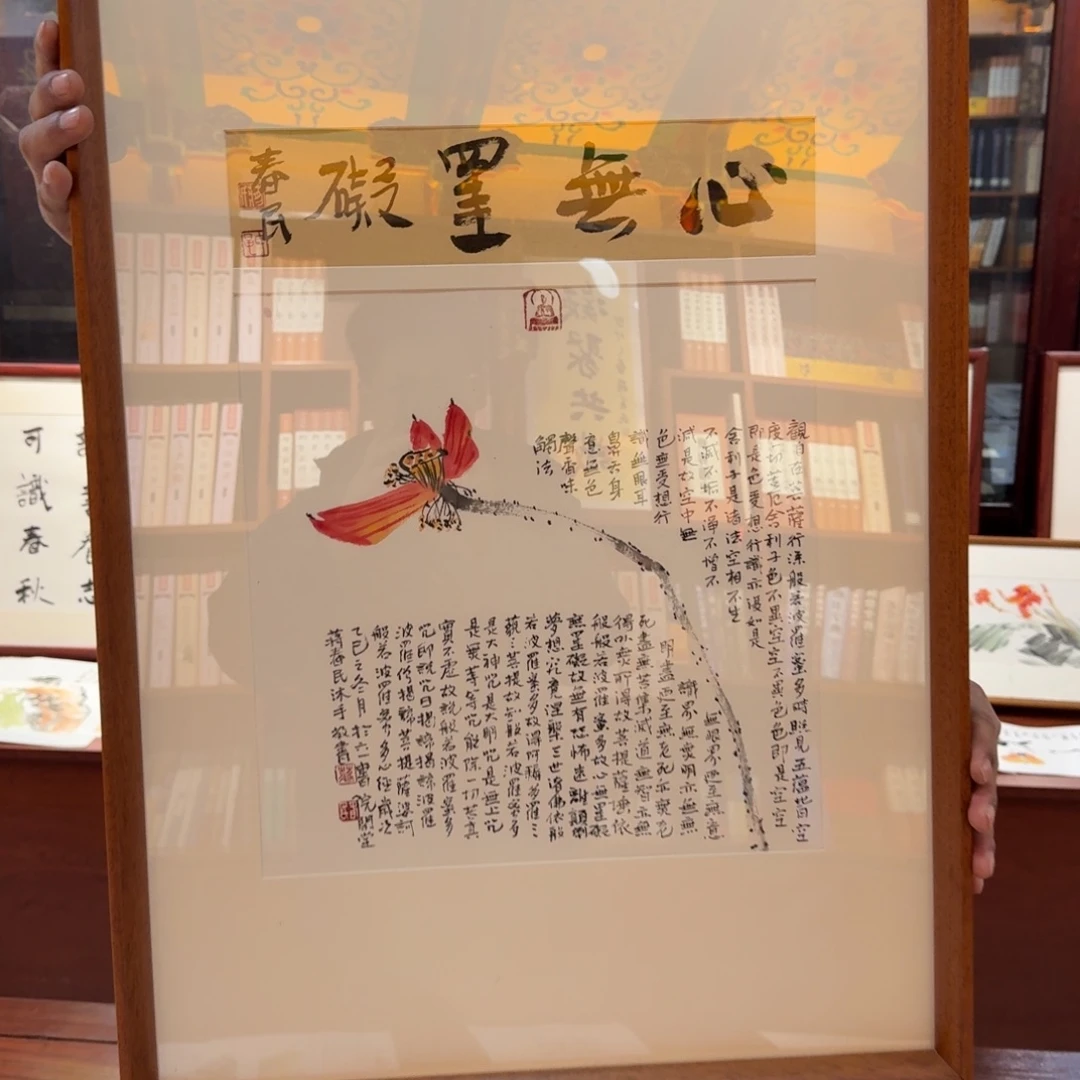 心無罣礙
春民
觀自在菩薩行深般若波羅蜜多時照見五蘊皆空
度一切苦厄舍利子色不異空空不異色色即是空空
即是色受想行識亦復如是
舍利子是諸法空相不生
不滅不垢不淨不增不
減是故空中無
色無受想行
識無眼耳
鼻舌身
意無色
聲香味
觸法
無眼界乃至無意
識界無無明亦無無
明盡乃至無老死亦無老
死盡無苦集滅道無智亦無
得以無所得故菩提薩埵依
般若波羅蜜多故心無罣礙
無罣礙故無有恐怖遠離顛倒
夢想究竟涅槃三世諸佛依般
若波羅蜜多故得阿耨多羅三
藐三菩提故知般若波羅蜜多
是大神咒是大明咒是無上咒
是無等等咒能除一切苦真
實不虛故說般若波羅蜜多
咒即說咒曰揭諦揭諦波羅
波羅僧揭諦菩提薩婆訶
般若波羅蜜多心經歲次
乙巳之冬月於六一書院
蔣春民沐手敬書
可識春秋